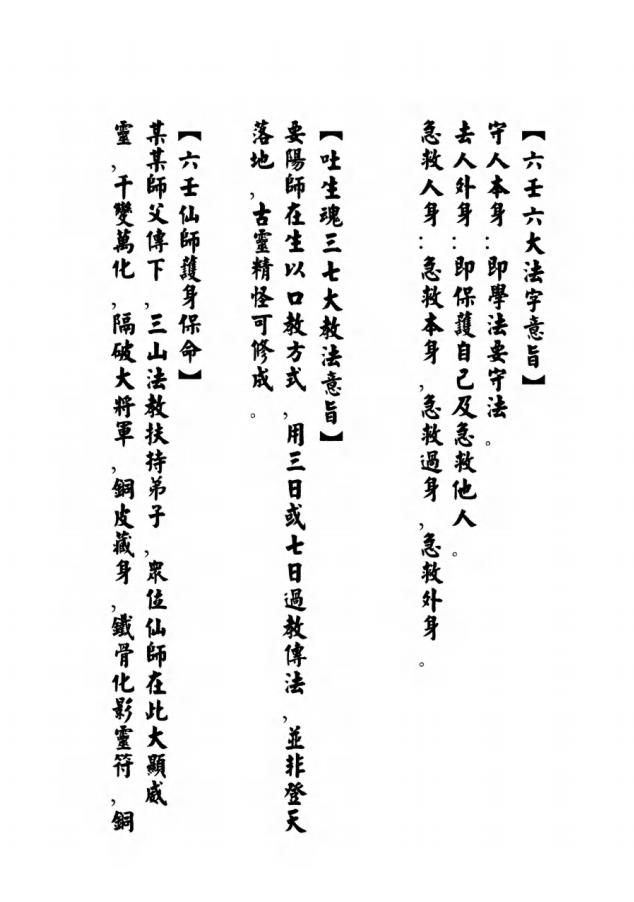 【六壬六大法字意旨】
守人本身：即學法要守法。
去人外身：即保護自己及急救他人。
急救人身：急救本身，急救過身，急救外身。
【吐生魂三七大教法意旨】
要陽師在生以口教方式，用三日或七日過教傳法，並非登天
落地，古靈精怪可修成。
【六壬仙師護身保命】
某某師父傳下，三山法教扶持弟子，眾位仙師在此大顯威
靈，千變萬化，隔破大將軍，銅皮藏身，鐵骨化影靈符，銅